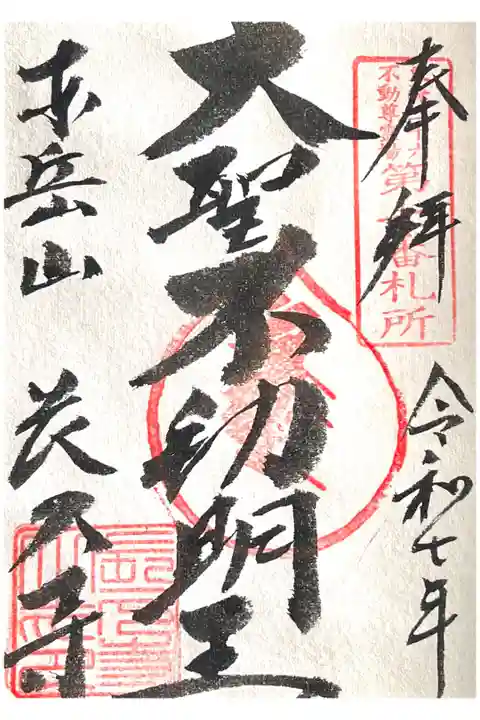 奉拝
令和七年
不動尊霊場
第 番札所
大聖不動明王
東岳山 長久寺